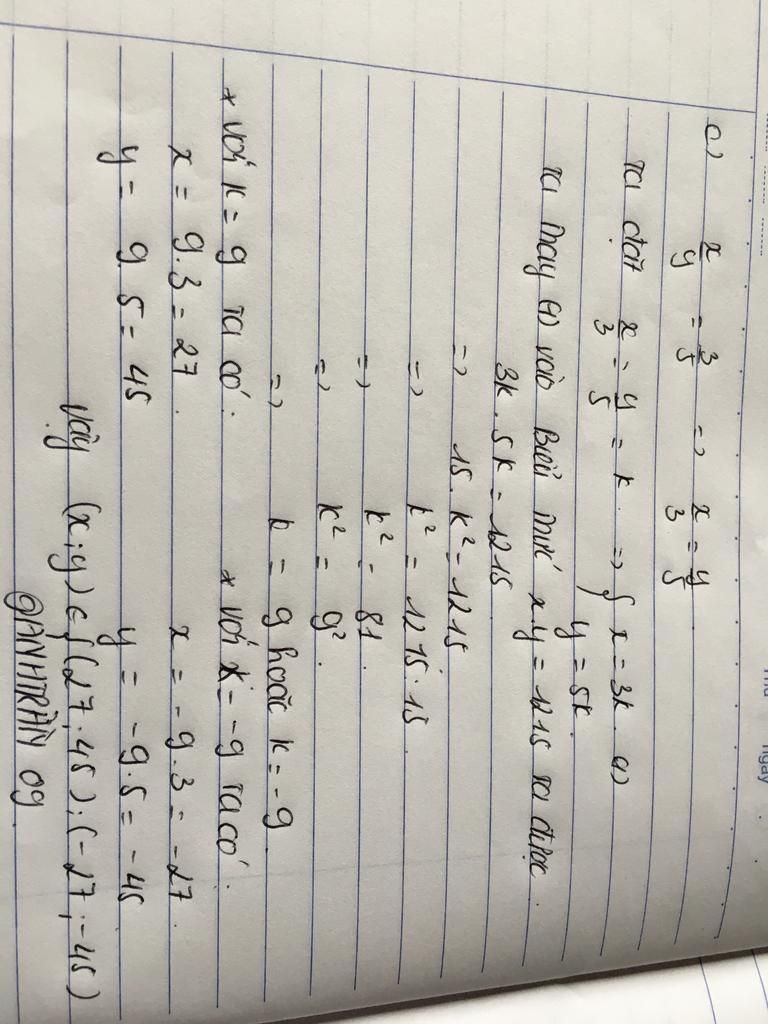 c) x/y = 3/5 => x/3 = y/5
Ta đặt x/3 = y/5 = k => { x = 3k (1)
y = 5k
Ta thay (1) vào Biểu thức x.y = 1215 ta được
3k . 5k = 1215
=> 15 . k² = 1215
=> k² = 1215 : 15
=> k² = 81
=> k² = 9²
=> k = 9 hoặc k = -9
+ với k = 9 ta có : + với k = -9 ta có :
x = 9.3 = 27 x = -9.3 = -27
y = 9.5 = 45 y = -9.5 = -45
Vậy (x;y) ∈ {(27;45);(-27;-45)
@ANHTRẦN 09